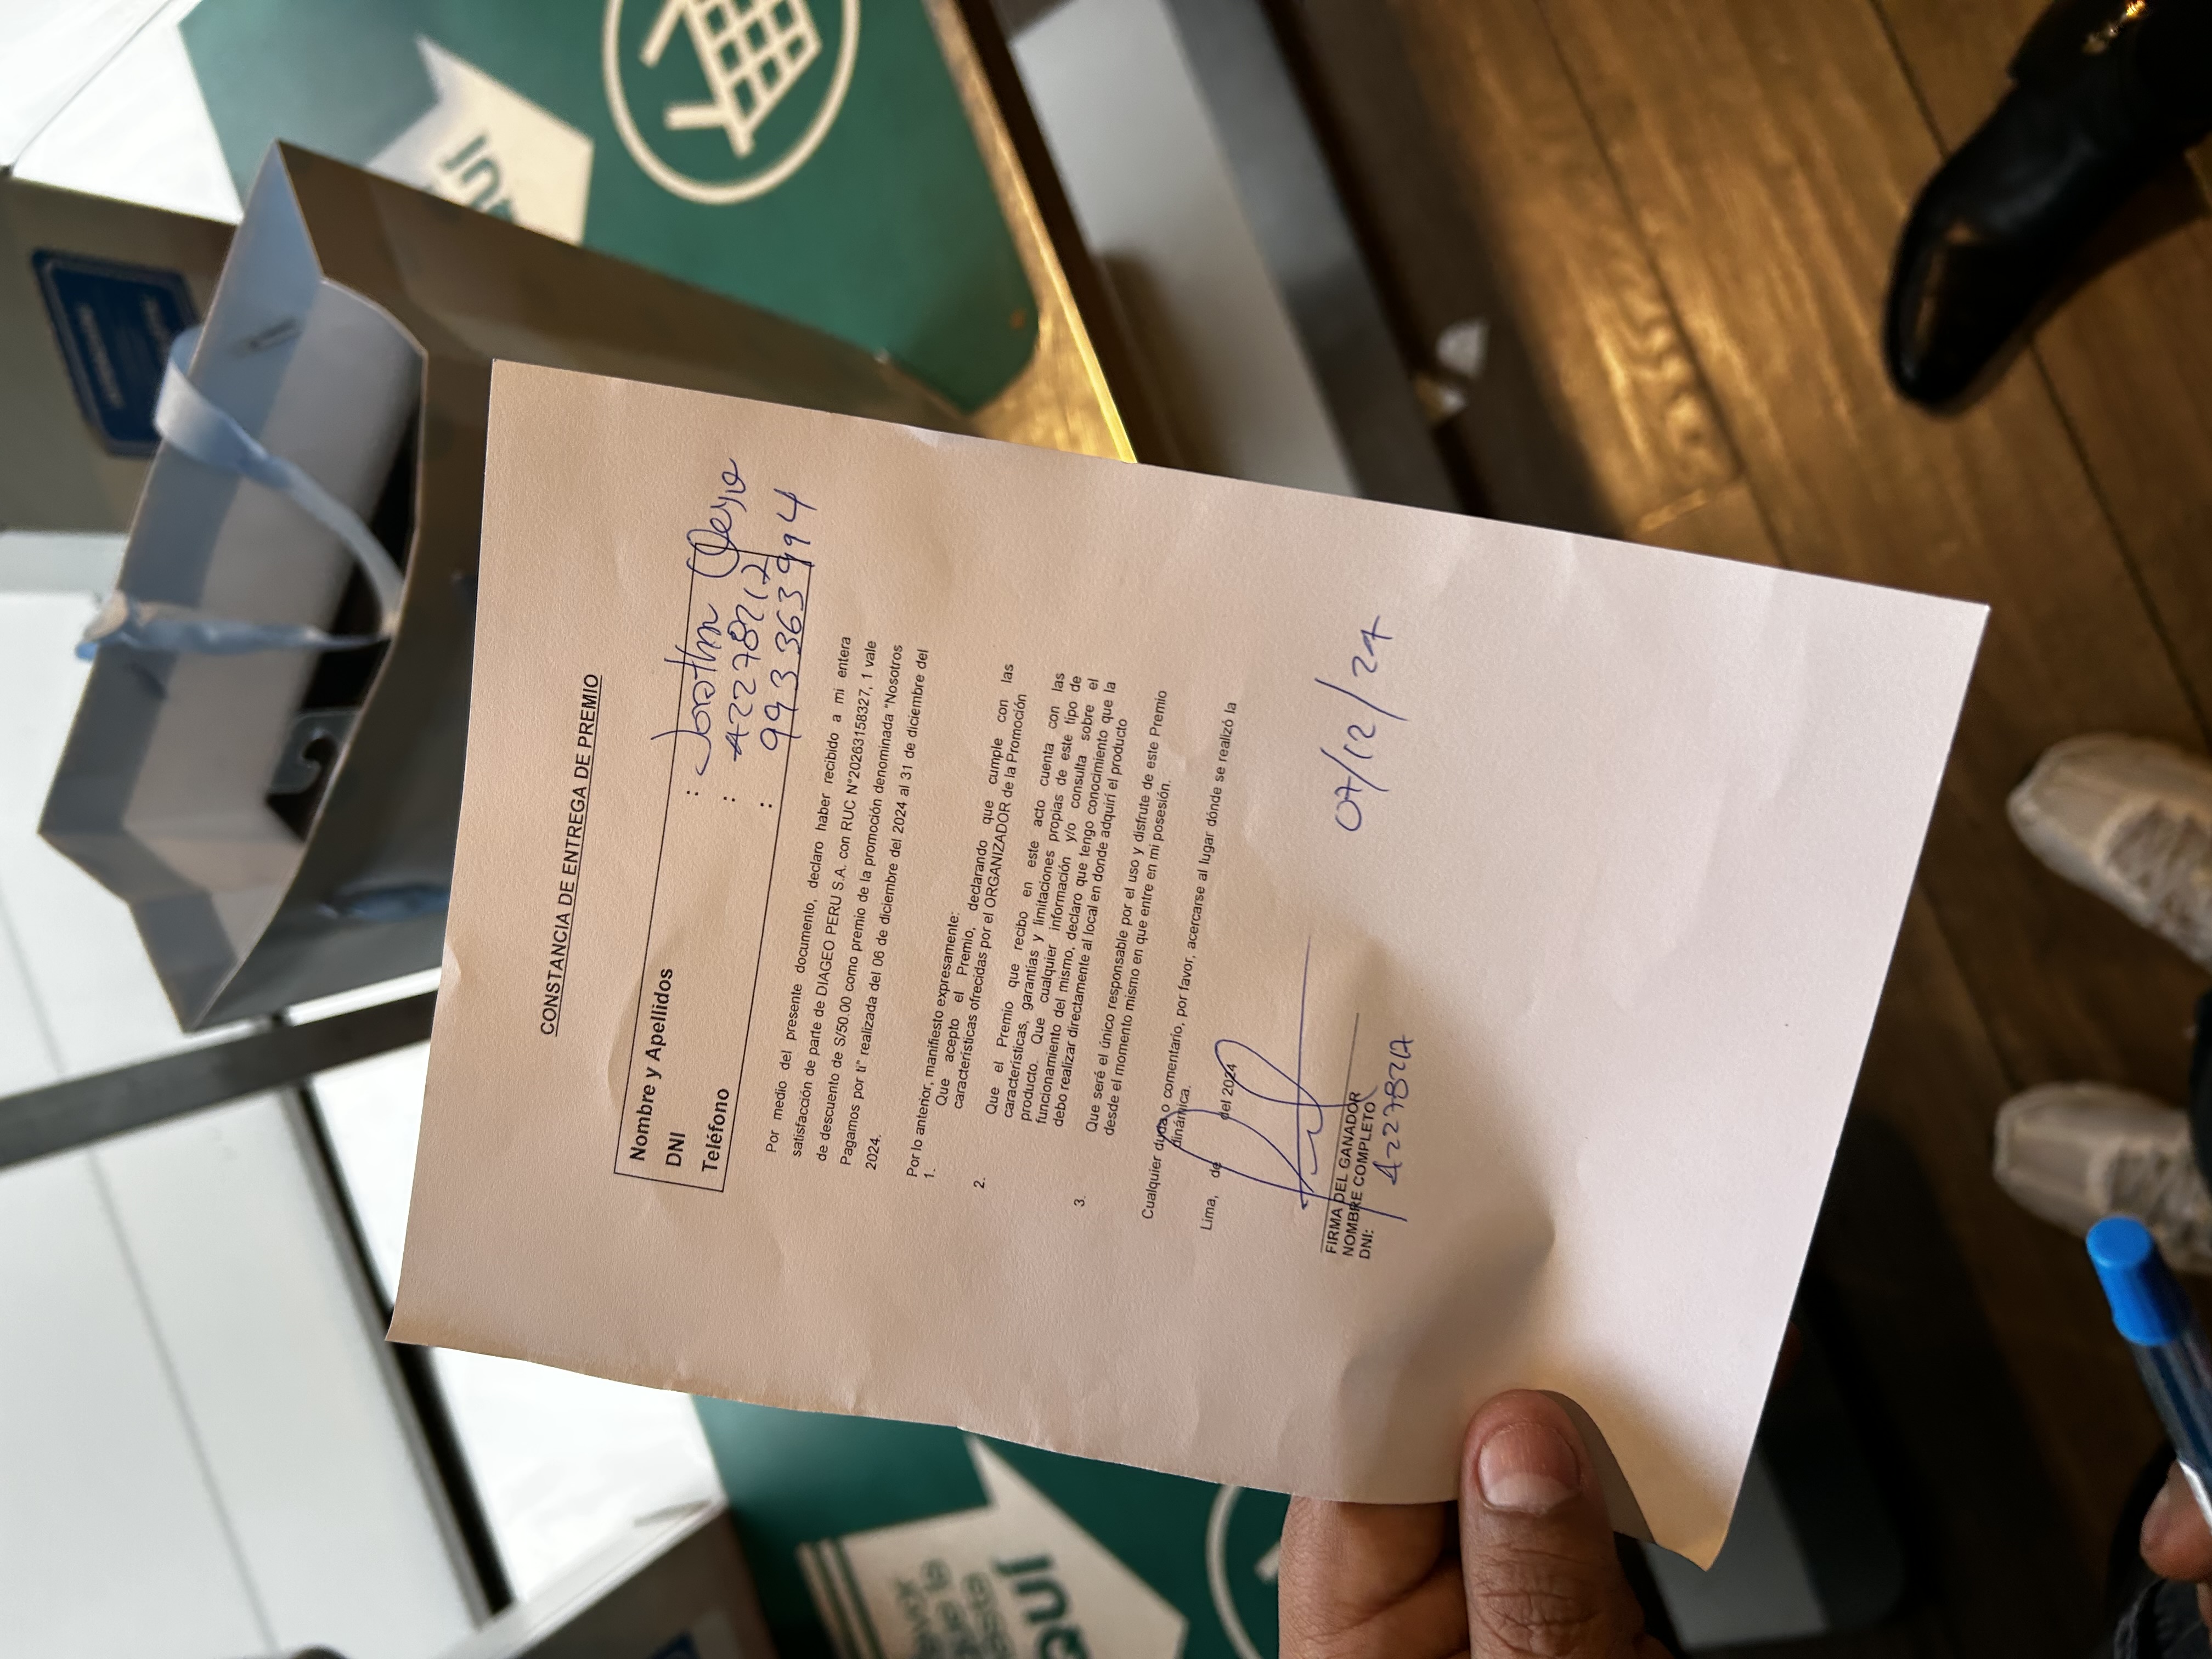 CONSTANCIA DE ENTREGA DE PREMIO
Nombre y Apellidos :
DNI : 42278217
Teléfono : 993363994
Por medio del presente documento, declaro haber recibido a mi entera
satisfacción de parte de DIAGEO PERU S.A. con RUC N°20263158327, 1 vale
de descuento de S/50.00 como premio de la promoción denominada "Nosotros
Pagamos por ti" realizada del 06 de diciembre del 2024 al 31 de diciembre del
2024.
Por lo anterior, manifiesto expresamente:
1. Que acepto el Premio, declarando que cumple con las
características ofrecidas por el ORGANIZADOR de la Promoción
2. Que el Premio que recibo en este acto cuenta con las
características, garantías y limitaciones propias de este tipo de
producto. Que cualquier información y/o consulta sobre el
funcionamiento del mismo, declaro que tengo conocimiento que la
debo realizar directamente al local en donde adquirí el producto
3. Que seré el único responsable por el uso y disfrute de este Premio
desde el momento mismo en que entre en mi posesión.
Cualquier duda o comentario, por favor, acercarse al lugar dónde se realizó la
dinámica.
Lima, de del 2024
FIRMA DEL GANADOR
NOMBRE COMPLETO
DNI: 42278217
07/12/24
QUÍ
que la
QUÍ